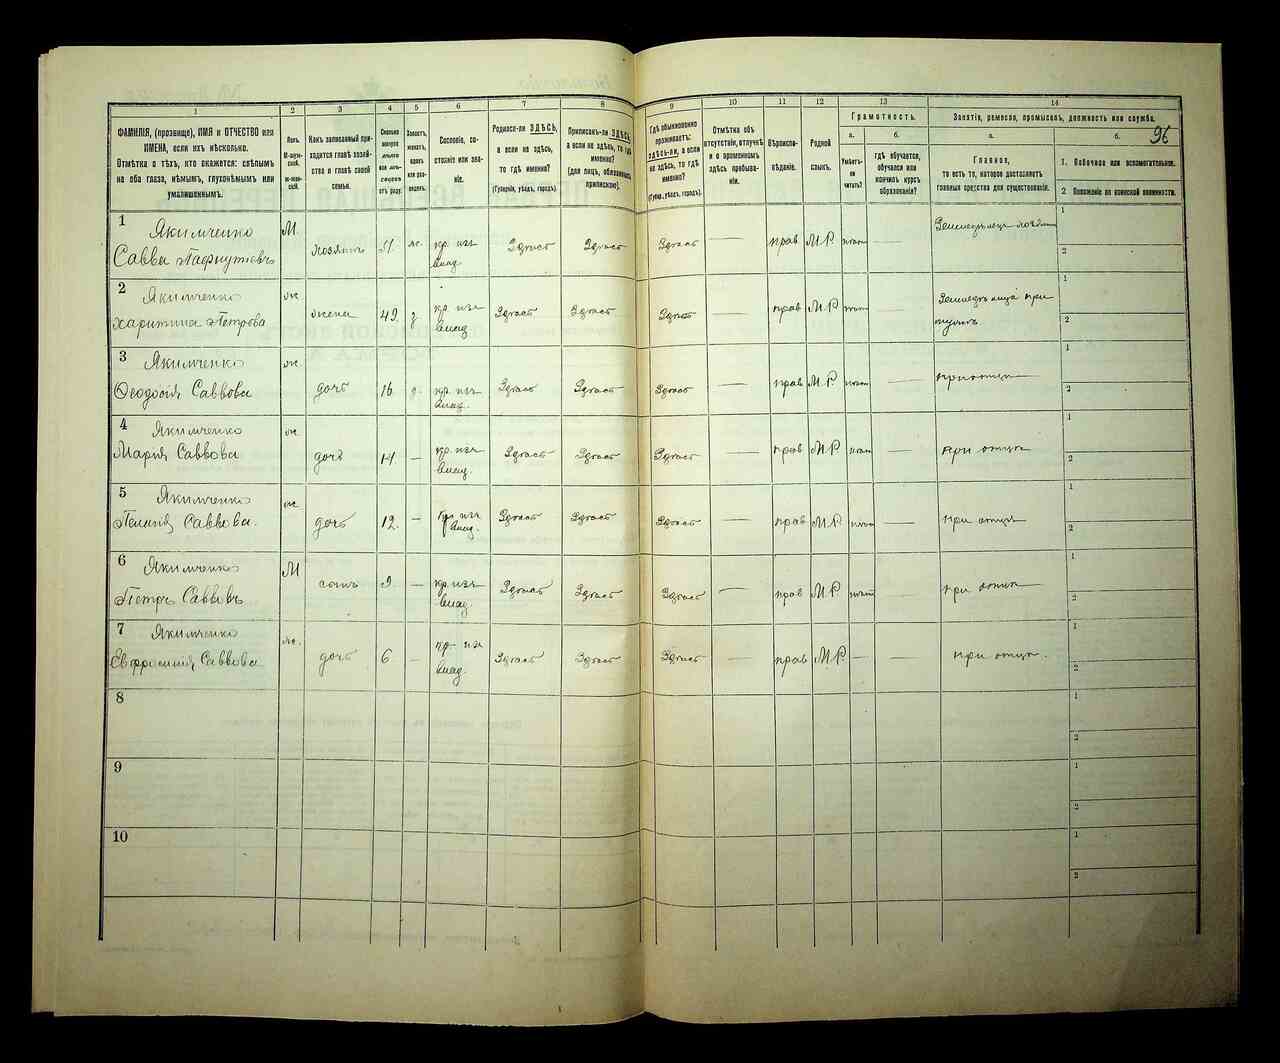 1 2 3 4 5 6 7 8 9 10 11 12 13 14
ФАМИЛІЯ, (прозвище), ИМЯ и ОТЧЕСТВО или
ИМЕНА, если ихъ нѣсколько.
Отмѣтка о тѣхъ, кто окажется: слѣпымъ
на оба глаза, нѣмымъ, глухонѣмымъ или
умалишеннымъ.
Полъ.
М-мужской.
ж-женскій.
Какъ записанный приходится
главѣ хозяйства
и главѣ своей
семьи.
Сколько
минуло
лѣтъ
или мѣсяцевъ
отъ роду.
Холостъ,
женатъ,
вдовъ
или разведенъ.
Сословіе, состояніе
или званіе.
Родился-ли ЗДѢСЬ,
а если не здѣсь,
то гдѣ именно?
(Губернія, уѣздъ, городъ).
Приписанъ-ли ЗДѢСЬ,
а если не здѣсь, то гдѣ
именно?
(для лицъ, обязанныхъ
припискою).
Гдѣ обыкновенно
проживаетъ:
здѣсь-ли, а если
не здѣсь, то гдѣ
именно?
(Губер., уѣздъ, городъ).
Отмѣтка объ
отсутствіи, отлучкѣ
и о временномъ
здѣсь пребываніи.
Вѣроисповѣданіе.
Родной
языкъ.
Грамотность.
а. б.
Умѣетъ-ли
читать?
гдѣ обучается,
обучался или
кончилъ курсъ
образованія?
Занятіе, ремесло, промыселъ, должность или служба.
96
а. б.
Главное,
то есть то, которое доставляетъ
главныя средства для существованія.
1. Побочное или вспомогательное.
2 Положеніе по воинской повинности.
1 Якимченко М. 1
Савва Пафнутіевъ хозяинъ ж. кр. изъ владѣ. Здѣсь Здѣсь Здѣсь — прав М.Р. — 2
2 Якимченко ж. 1
Харитина Петрова жена 42 кр. изъ владѣ. Здѣсь Здѣсь Здѣсь — прав М.Р. — 2
3 Якимченко ж. 1
Феодосія Саввова дочь 16 кр. изъ владѣ. Здѣсь Здѣсь Здѣсь — прав М.Р. — при отцѣ 2
4 Якимченко ж. 1
Марія Саввова дочь 14 — кр. изъ владѣ. Здѣсь Здѣсь Здѣсь — прав М.Р. — при отцѣ 2
5 Якимченко ж. 1
Саввова. дочь 12. — кр. изъ владѣ. Здѣсь Здѣсь Здѣсь — прав М.Р. — при отцѣ 2
6 Якимченко М 1
Петръ Саввовъ сынъ 9 — кр. изъ владѣ. Здѣсь Здѣсь Здѣсь — прав М.Р. при отцѣ 2
7 Якимченко ж. 1
Евфросинія Саввова дочь 6 — кр. изъ владѣ. Здѣсь Здѣсь Здѣсь — прав М.Р. — при отцѣ. 2
8 1
2
9 1
2
10 1
2